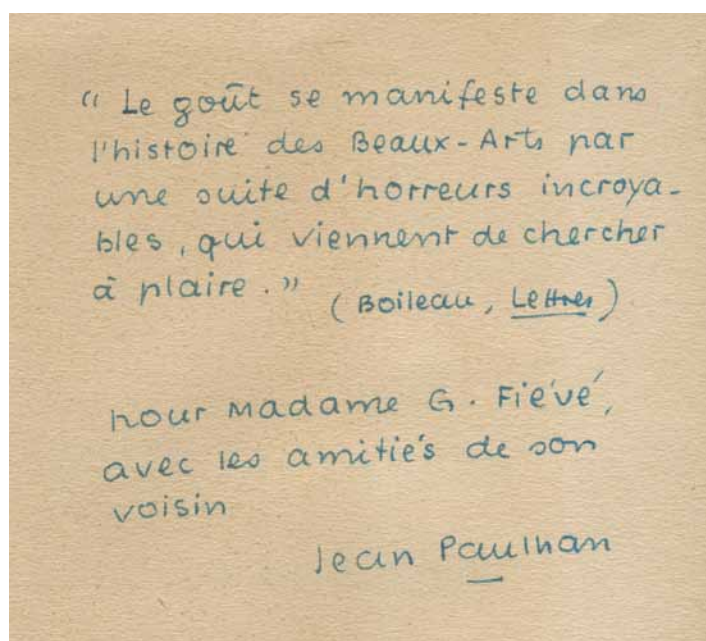 “ Le goût se manifeste dans
l'histoire des Beaux-Arts par
une suite d'horreurs incroya-
bles, qui viennent de chercher
à plaire. ”
(Boileau, Lettres)
pour Madame G. Fiévé,
avec les amitiés de son
voisin
Jean Paulhan